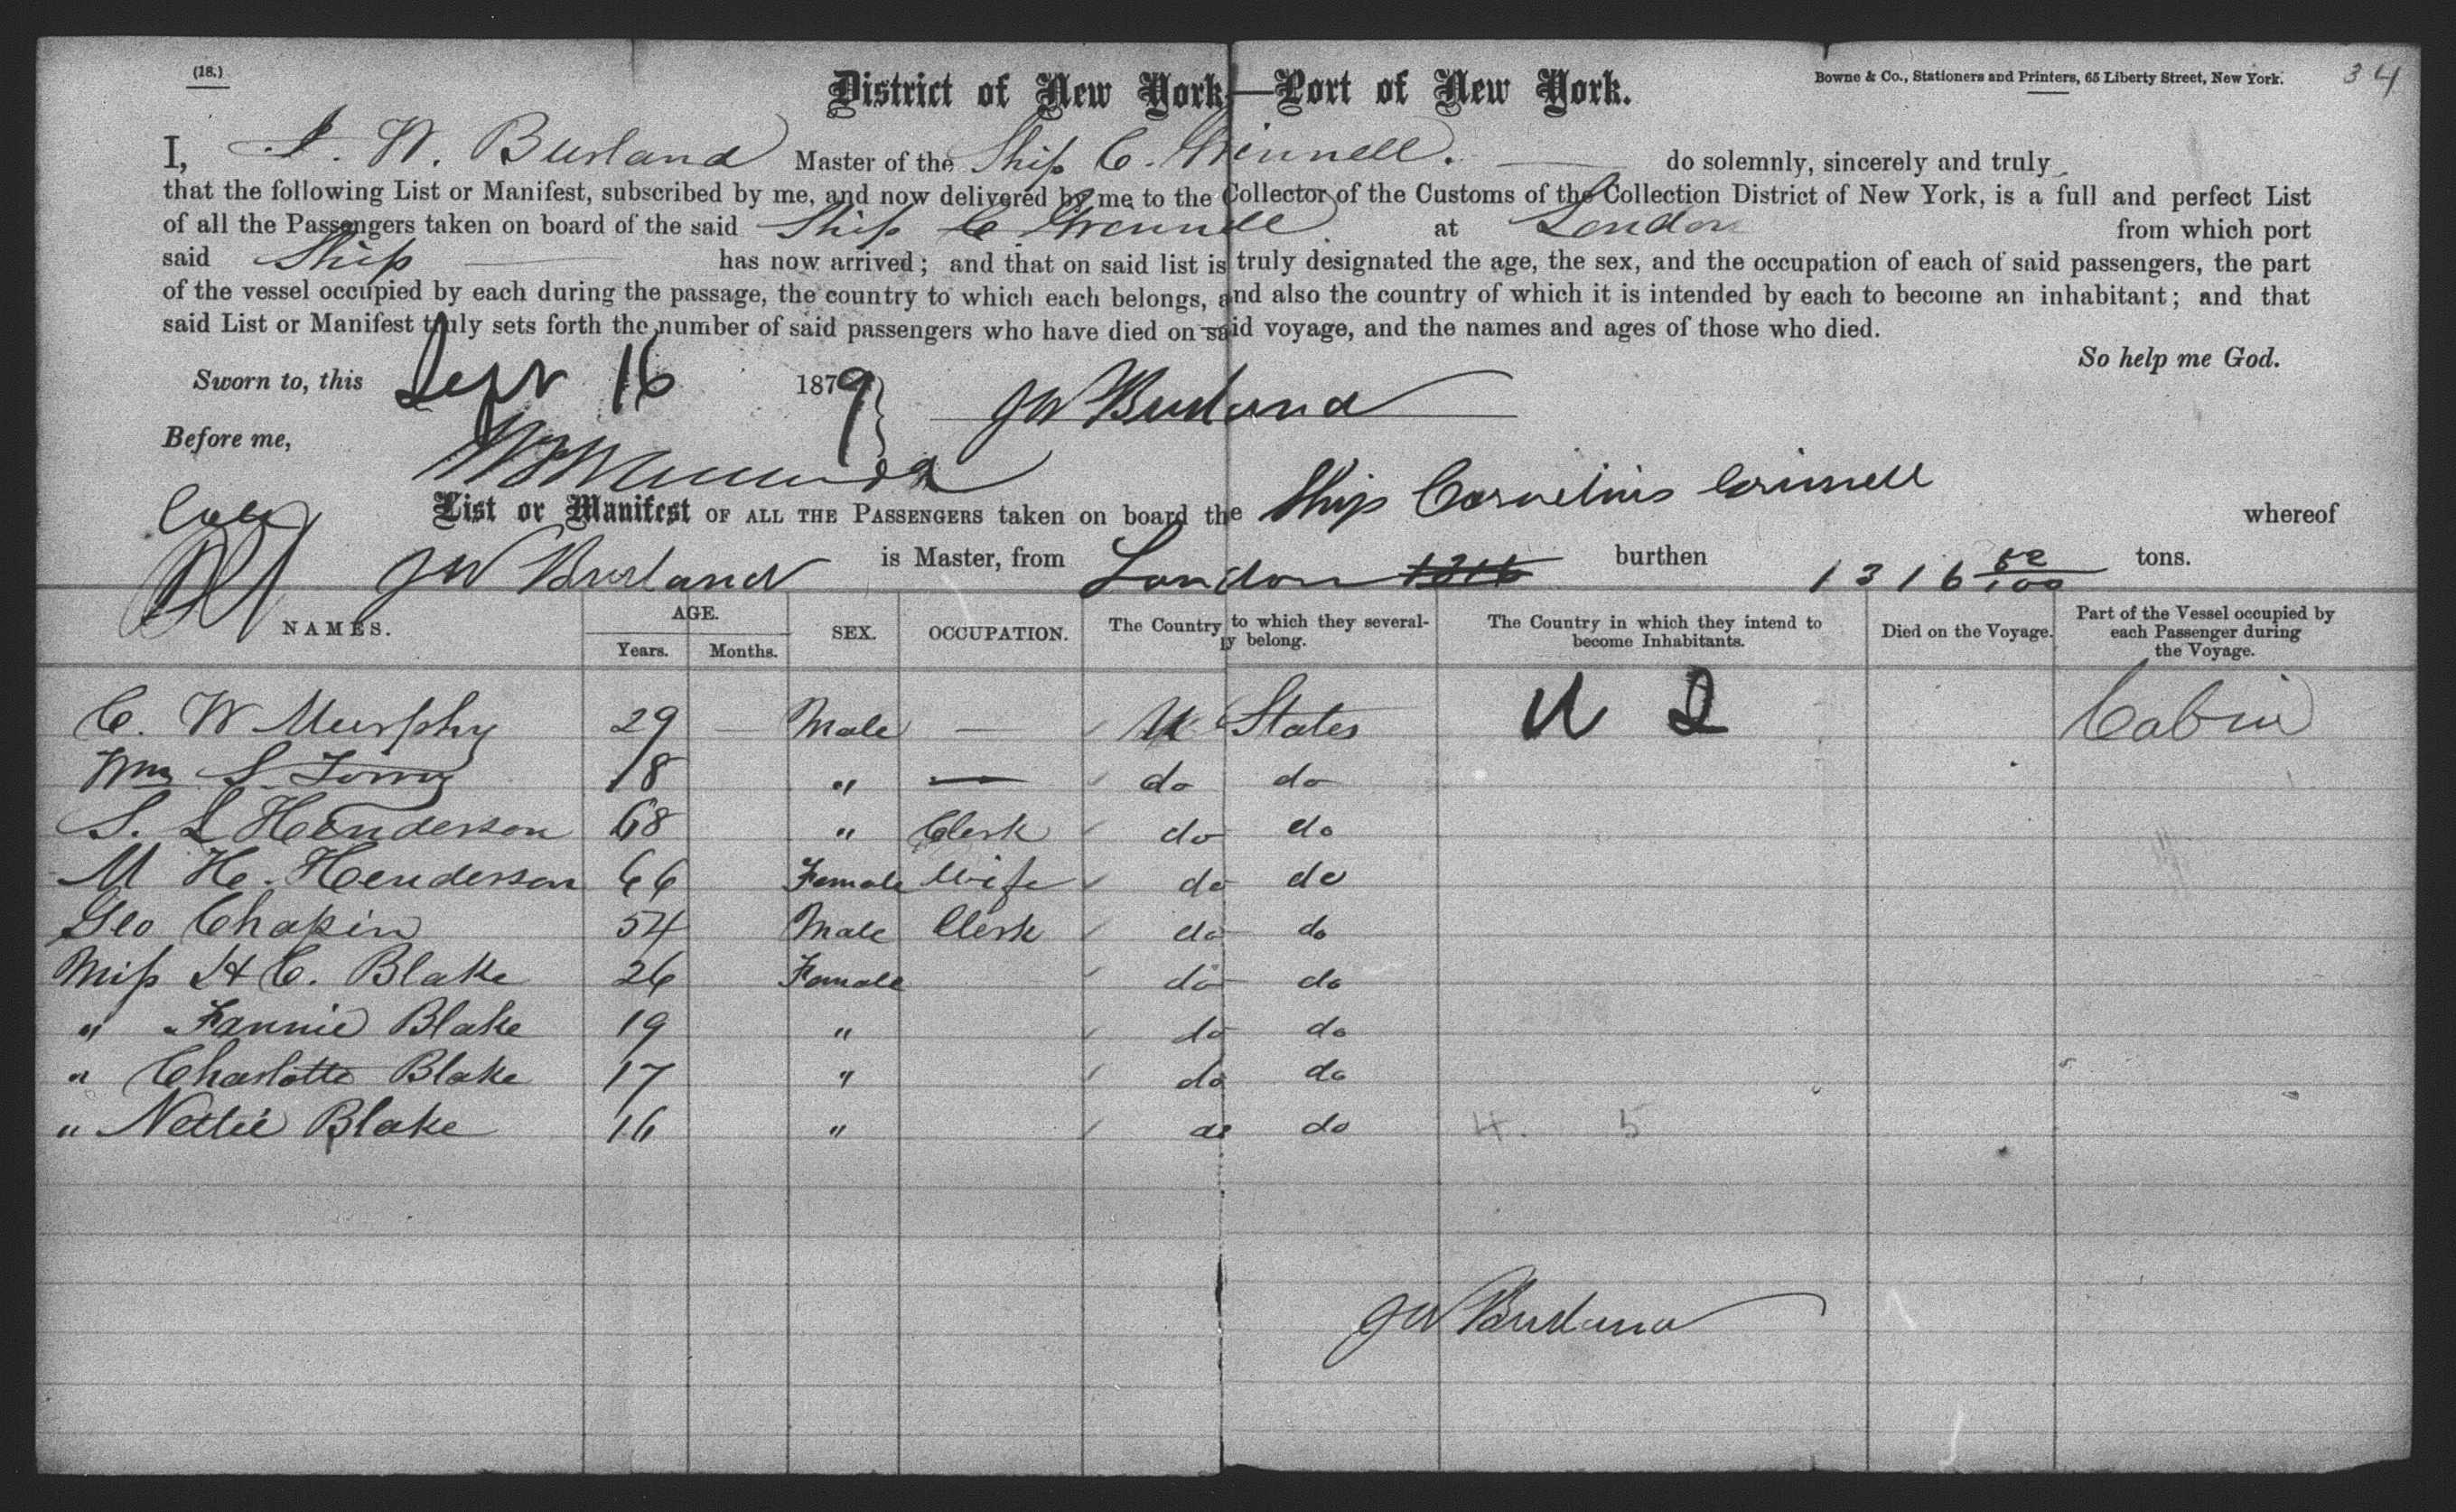 (18.)
District of New York—Port of New York.
Bowne & Co., Stationers and Printers, 65 Liberty Street, New York.
34
I, J. W. Burland Master of the Ship C. Grinnell. do solemnly, sincerely and truly
that the following List or Manifest, subscribed by me, and now delivered by me to the Collector of the Customs of the Collection District of New York, is a full and perfect List
of all the Passengers taken on board of the said Ship C Grennell at London from which port
said Ship has now arrived; and that on said list is truly designated the age, the sex, and the occupation of each of said passengers, the part
of the vessel occupied by each during the passage, the country to which each belongs, and also the country of which it is intended by each to become an inhabitant; and that
said List or Manifest truly sets forth the number of said passengers who have died on said voyage, and the names and ages of those who died.
So help me God.
Sworn to, this Sept 16 1879 } J W Burland
Before me,
List or Manifest OF ALL THE PASSENGERS taken on board the Ship Cornelius Grinnell whereof
J W Burland is Master, from London 1316 burthen 1316 52/100 tons.
NAMES. AGE. Years. Months. SEX. OCCUPATION. The Country to which they severally belong. The Country in which they intend to become Inhabitants. Died on the Voyage. Part of the Vessel occupied by each Passenger during the Voyage.
C. W Murphy 29 — Male — U States U S Cabin
Wm S. 18 " — do do
S. L Henderson 68 " Clerk do do
M H. Henderson 66 Female Wife do do
Geo Chapin 54 Male Clerk do do
Miss H C. Blake 26 Female do do
" Fannie Blake 19 " do do
" Charlotte Blake 17 " do do
" Nettie Blake 16 " do do 4. 5
J W Burland